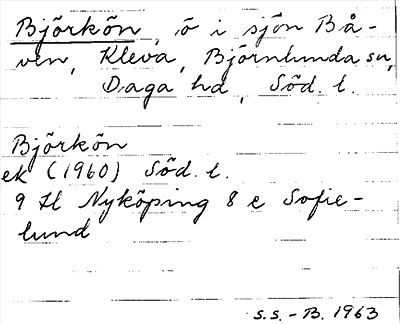 Björkön, ö i sjön Bå-
ven, Kleva, Björnlunda sn,
Daga hd, Söd. l.
Björkön
ek (1960) Söd. l.
9 H Nyköping 8 e Sofie-
lund
S.S. - B. 1963